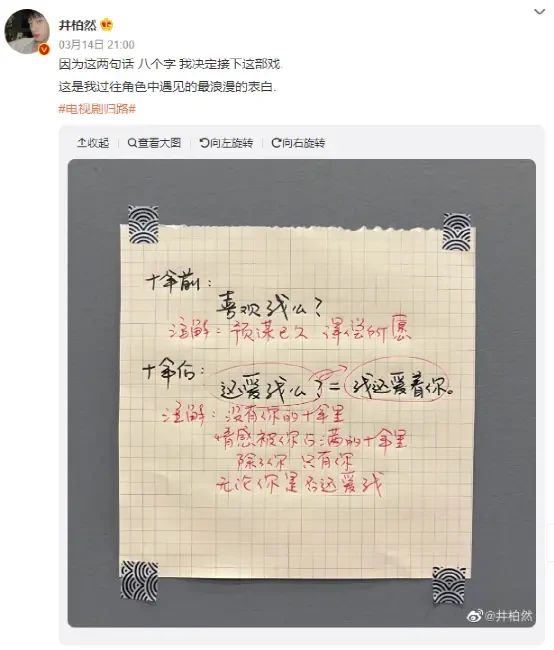 井柏然
03月14日 21:00
因为这两句话 八个字 我决定接下这部戏.
这是我过往角色中遇见的最浪漫的表白.
#电视剧归路#
收起 查看大图 向左旋转 向右旋转
十年前:
喜欢我么?
注解: 预谋已久 得偿所愿
十年后:
还爱我么?=我还爱着你。
注解: 没有你的十年里
情感被你占满的十年里
除了你 只有你
无论你是否还爱我
@井柏然